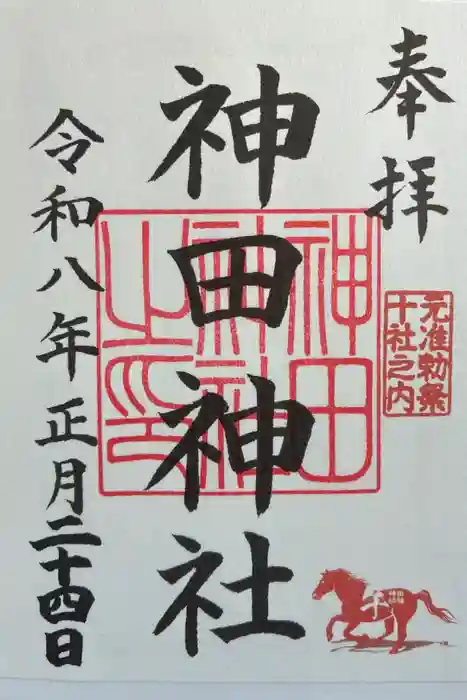 奉拝
元准勅祭
十社之内
神田神社
神田
神社
之印
令和八年正月二十四日